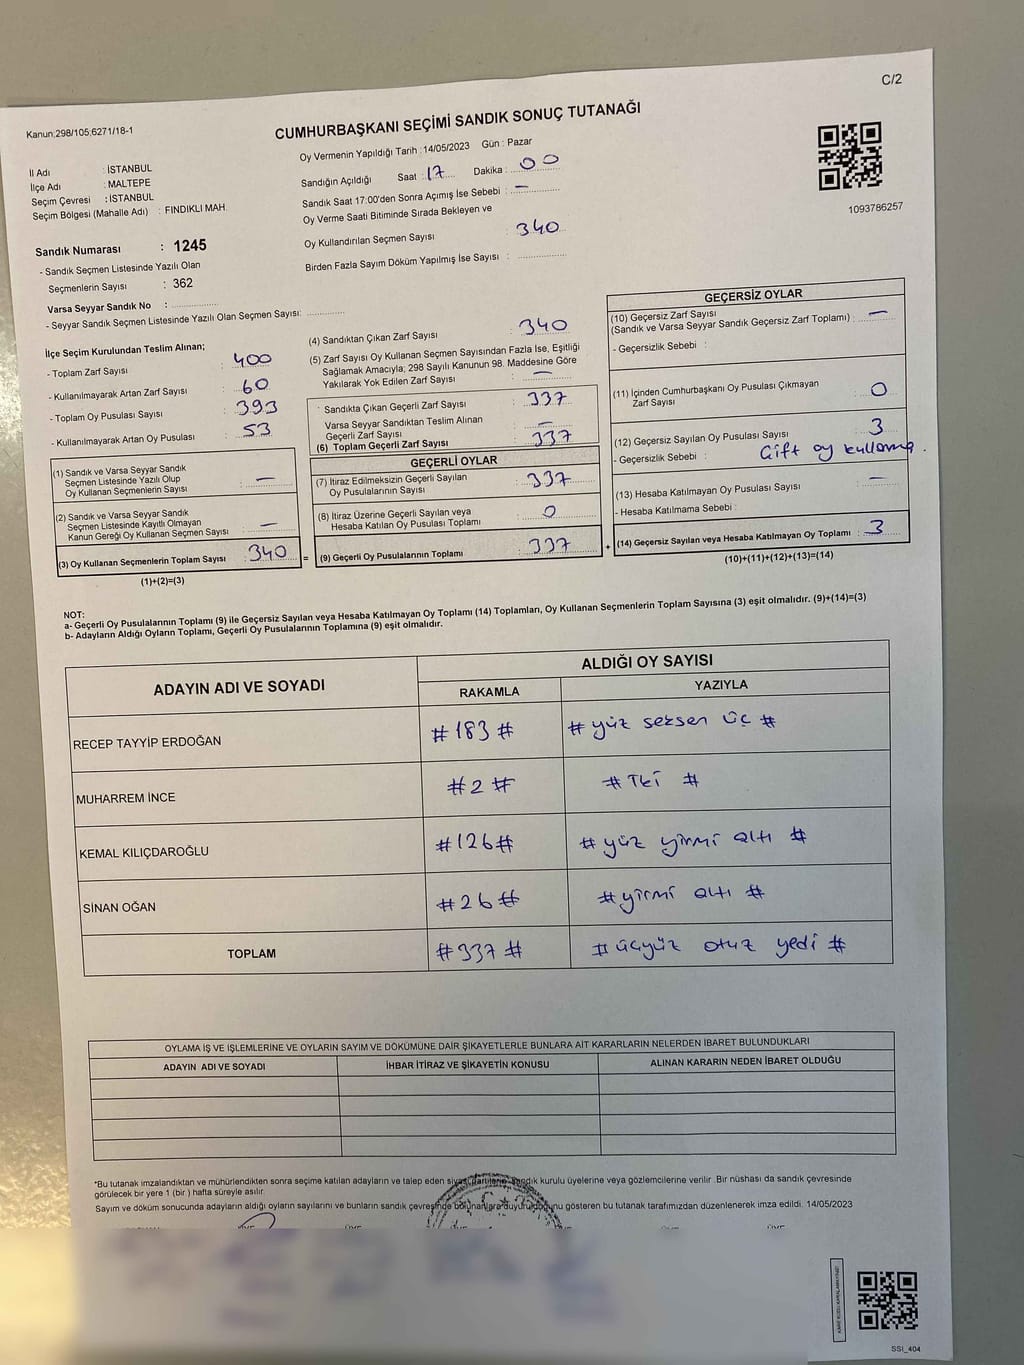 C/2
Kanun:298/105;6271/18-1
CUMHURBAŞKANI SEÇİMİ SANDIK SONUÇ TUTANAĞI
İl Adı : İSTANBUL
İlçe Adı : MALTEPE
Seçim Çevresi : İSTANBUL
Seçim Bölgesi (Mahalle Adı) : FINDIKLI MAH.
Oy Vermenin Yapıldığı Tarih : 14/05/2023 Gün : Pazar
Sandığın Açıldığı Saat : 17 Dakika : 00
Sandık Saat 17:00'den Sonra Açımış İse Sebebi : —
Oy Verme Saati Bitiminde Sırada Bekleyen ve
Oy Kullandırılan Seçmen Sayısı : 340
Birden Fazla Sayım Döküm Yapılmış İse Sayısı :
1093786257
Sandık Numarası : 1245
- Sandık Seçmen Listesinde Yazılı Olan
Seçmenlerin Sayısı : 362
Varsa Seyyar Sandık No :
- Seyyar Sandık Seçmen Listesinde Yazılı Olan Seçmen Sayısı:
İlçe Seçim Kurulundan Teslim Alınan;
- Toplam Zarf Sayısı : 400
- Kullanılmayarak Artan Zarf Sayısı : 60
- Toplam Oy Pusulası Sayısı : 393
- Kullanılmayarak Artan Oy Pusulası : 53
(1) Sandık ve Varsa Seyyar Sandık
Seçmen Listesinde Yazılı Olup
Oy Kullanan Seçmenlerin Sayısı : —
(2) Sandık ve Varsa Seyyar Sandık
Seçmen Listesinde Kayıtlı Olmayan
Kanun Gereği Oy Kullanan Seçmen Sayısı : —
(3) Oy Kullanan Seçmenlerin Toplam Sayısı : 340 =
(1)+(2)=(3)
(4) Sandıktan Çıkan Zarf Sayısı : 340
(5) Zarf Sayısı Oy Kullanan Seçmen Sayısından Fazla İse, Eşitliği
Sağlamak Amacıyla; 298 Sayılı Kanunun 98. Maddesine Göre
Yakılarak Yok Edilen Zarf Sayısı : —
Sandıkta Çıkan Geçerli Zarf Sayısı : 337
Varsa Seyyar Sandıktan Teslim Alınan
Geçerli Zarf Sayısı : —
(6) Toplam Geçerli Zarf Sayısı : 337
GEÇERLİ OYLAR
(7) İtiraz Edilmeksizin Geçerli Sayılan
Oy Pusulalarının Sayısı : 337
(8) İtiraz Üzerine Geçerli Sayılan veya
Hesaba Katılan Oy Pusulası Toplamı : 0
(9) Geçerli Oy Pusulalarının Toplamı : 337 +
GEÇERSİZ OYLAR
(10) Geçersiz Zarf Sayısı
(Sandık ve Varsa Seyyar Sandık Geçersiz Zarf Toplamı) : —
- Geçersizlik Sebebi :
(11) İçinden Cumhurbaşkanı Oy Pusulası Çıkmayan
Zarf Sayısı : 0
(12) Geçersiz Sayılan Oy Pusulası Sayısı : 3
- Geçersizlik Sebebi : Çift oy kullanma.
(13) Hesaba Katılmayan Oy Pusulası Sayısı : —
- Hesaba Katılmama Sebebi :
(14) Geçersiz Sayılan veya Hesaba Katılmayan Oy Toplamı : 3
(10)+(11)+(12)+(13)=(14)
NOT:
a- Geçerli Oy Pusulalarının Toplamı (9) ile Geçersiz Sayılan veya Hesaba Katılmayan Oy Toplamı (14) Toplamları, Oy Kullanan Seçmenlerin Toplam Sayısına (3) eşit olmalıdır. (9)+(14)=(3)
b- Adayların Aldığı Oyların Toplamı, Geçerli Oy Pusulalarının Toplamına (9) eşit olmalıdır.
ADAYIN ADI VE SOYADI
ALDIĞI OY SAYISI
RAKAMLA YAZIYLA
RECEP TAYYİP ERDOĞAN #183# #yüz seksen üç#
MUHARREM İNCE #2# #İki#
KEMAL KILIÇDAROĞLU #126# #yüz yirmi altı#
SİNAN OĞAN #26# #yirmi altı#
TOPLAM #337# #üçyüz otuz yedi#
OYLAMA İŞ VE İŞLEMLERİNE VE OYLARIN SAYIM VE DÖKÜMÜNE DAİR ŞİKAYETLERLE BUNLARA AİT KARARLARIN NELERDEN İBARET BULUNDUKLARI
ADAYIN ADI VE SOYADI İHBAR İTİRAZ VE ŞİKAYETİN KONUSU ALINAN KARARIN NEDEN İBARET OLDUĞU
*Bu tutanak imzalandıktan ve mühürlendikten sonra seçime katılan adayların ve talep eden siyasi partilerin sandık kurulu üyelerine veya gözlemcilerine verilir. Bir nüshası da sandık çevresinde
görülecek bir yere 1 (bir ) hafta süreyle asılır.
Sayım ve döküm sonucunda adayların aldığı oyların sayılarını ve bunların sandık çevresinde bulunanlara duyurulduğunu gösteren bu tutanak tarafımızdan düzenlenerek imza edildi. 14/05/2023
SSI_404